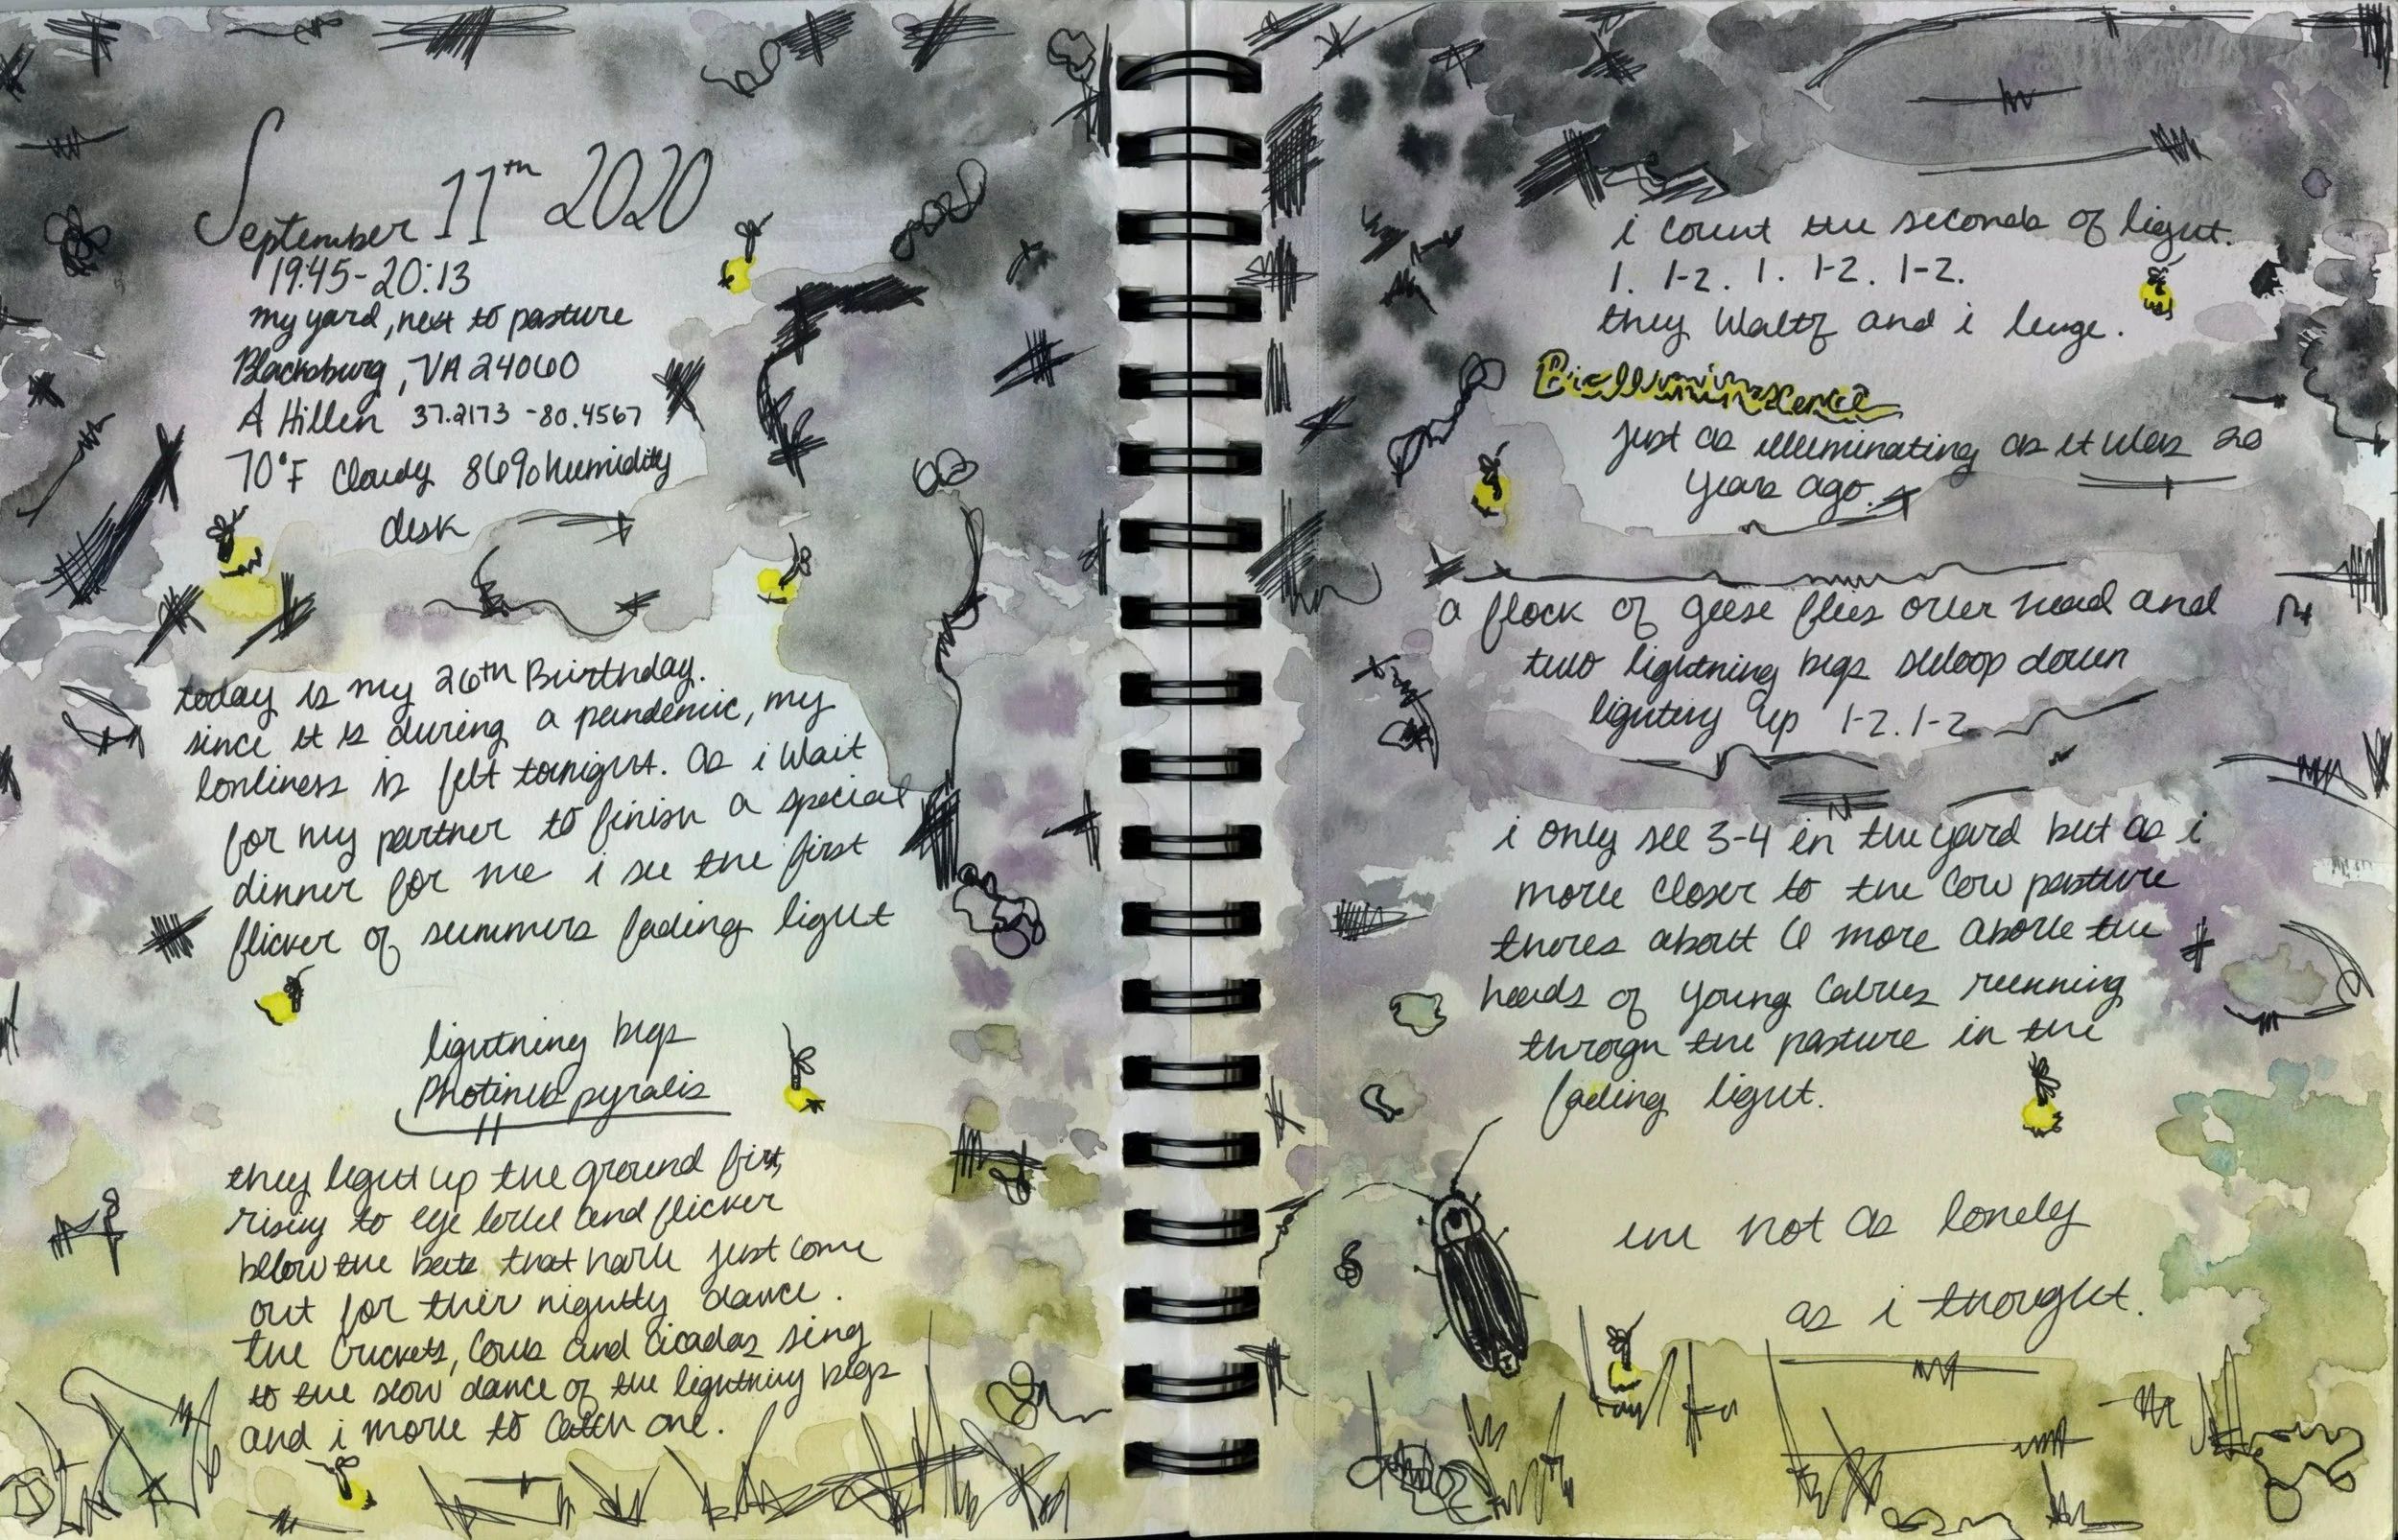 September 11th 2020
19:45-20:13
my yard, next to pasture
Blacksburg, VA 24060
A Hillen 37.2173 -80.4567
70°F Cloudy 86% humidity
dusk
today is my 26th Birthday.
since it is during a pandemic, my
lonliness is felt tonight. as i wait
for my partner to finish a special
dinner for me i see the first
flicker of summers fading light
lightning bugs
Photinus pyralis
they light up the ground first,
rising to eye level and flicker
below the bats that have just come
out for their nightly dance.
the crickets, cows and cicadas sing
to the slow dance of the lightning bugs
and i move to catch one.
i count the seconds of light.
1. 1-2. 1. 1-2. 1-2.
they waltz and i lunge.
just as illuminating as it was 20
years ago.
a flock of geese flies over head and
two lightning bugs swoop down
lighting up 1-2. 1-2
i only see 3-4 in the yard but as i
move closer to the cow pasture
theres about 6 more above the
heads of young calves running
through the pasture in the
fading light.
im not as lonely
as i thought.